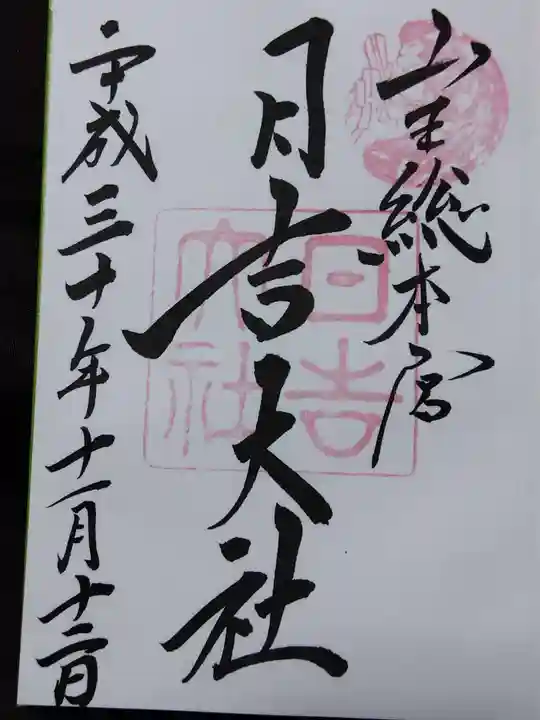 山王総本宮
日吉大社
日吉大社
平成三十年十一月十二日